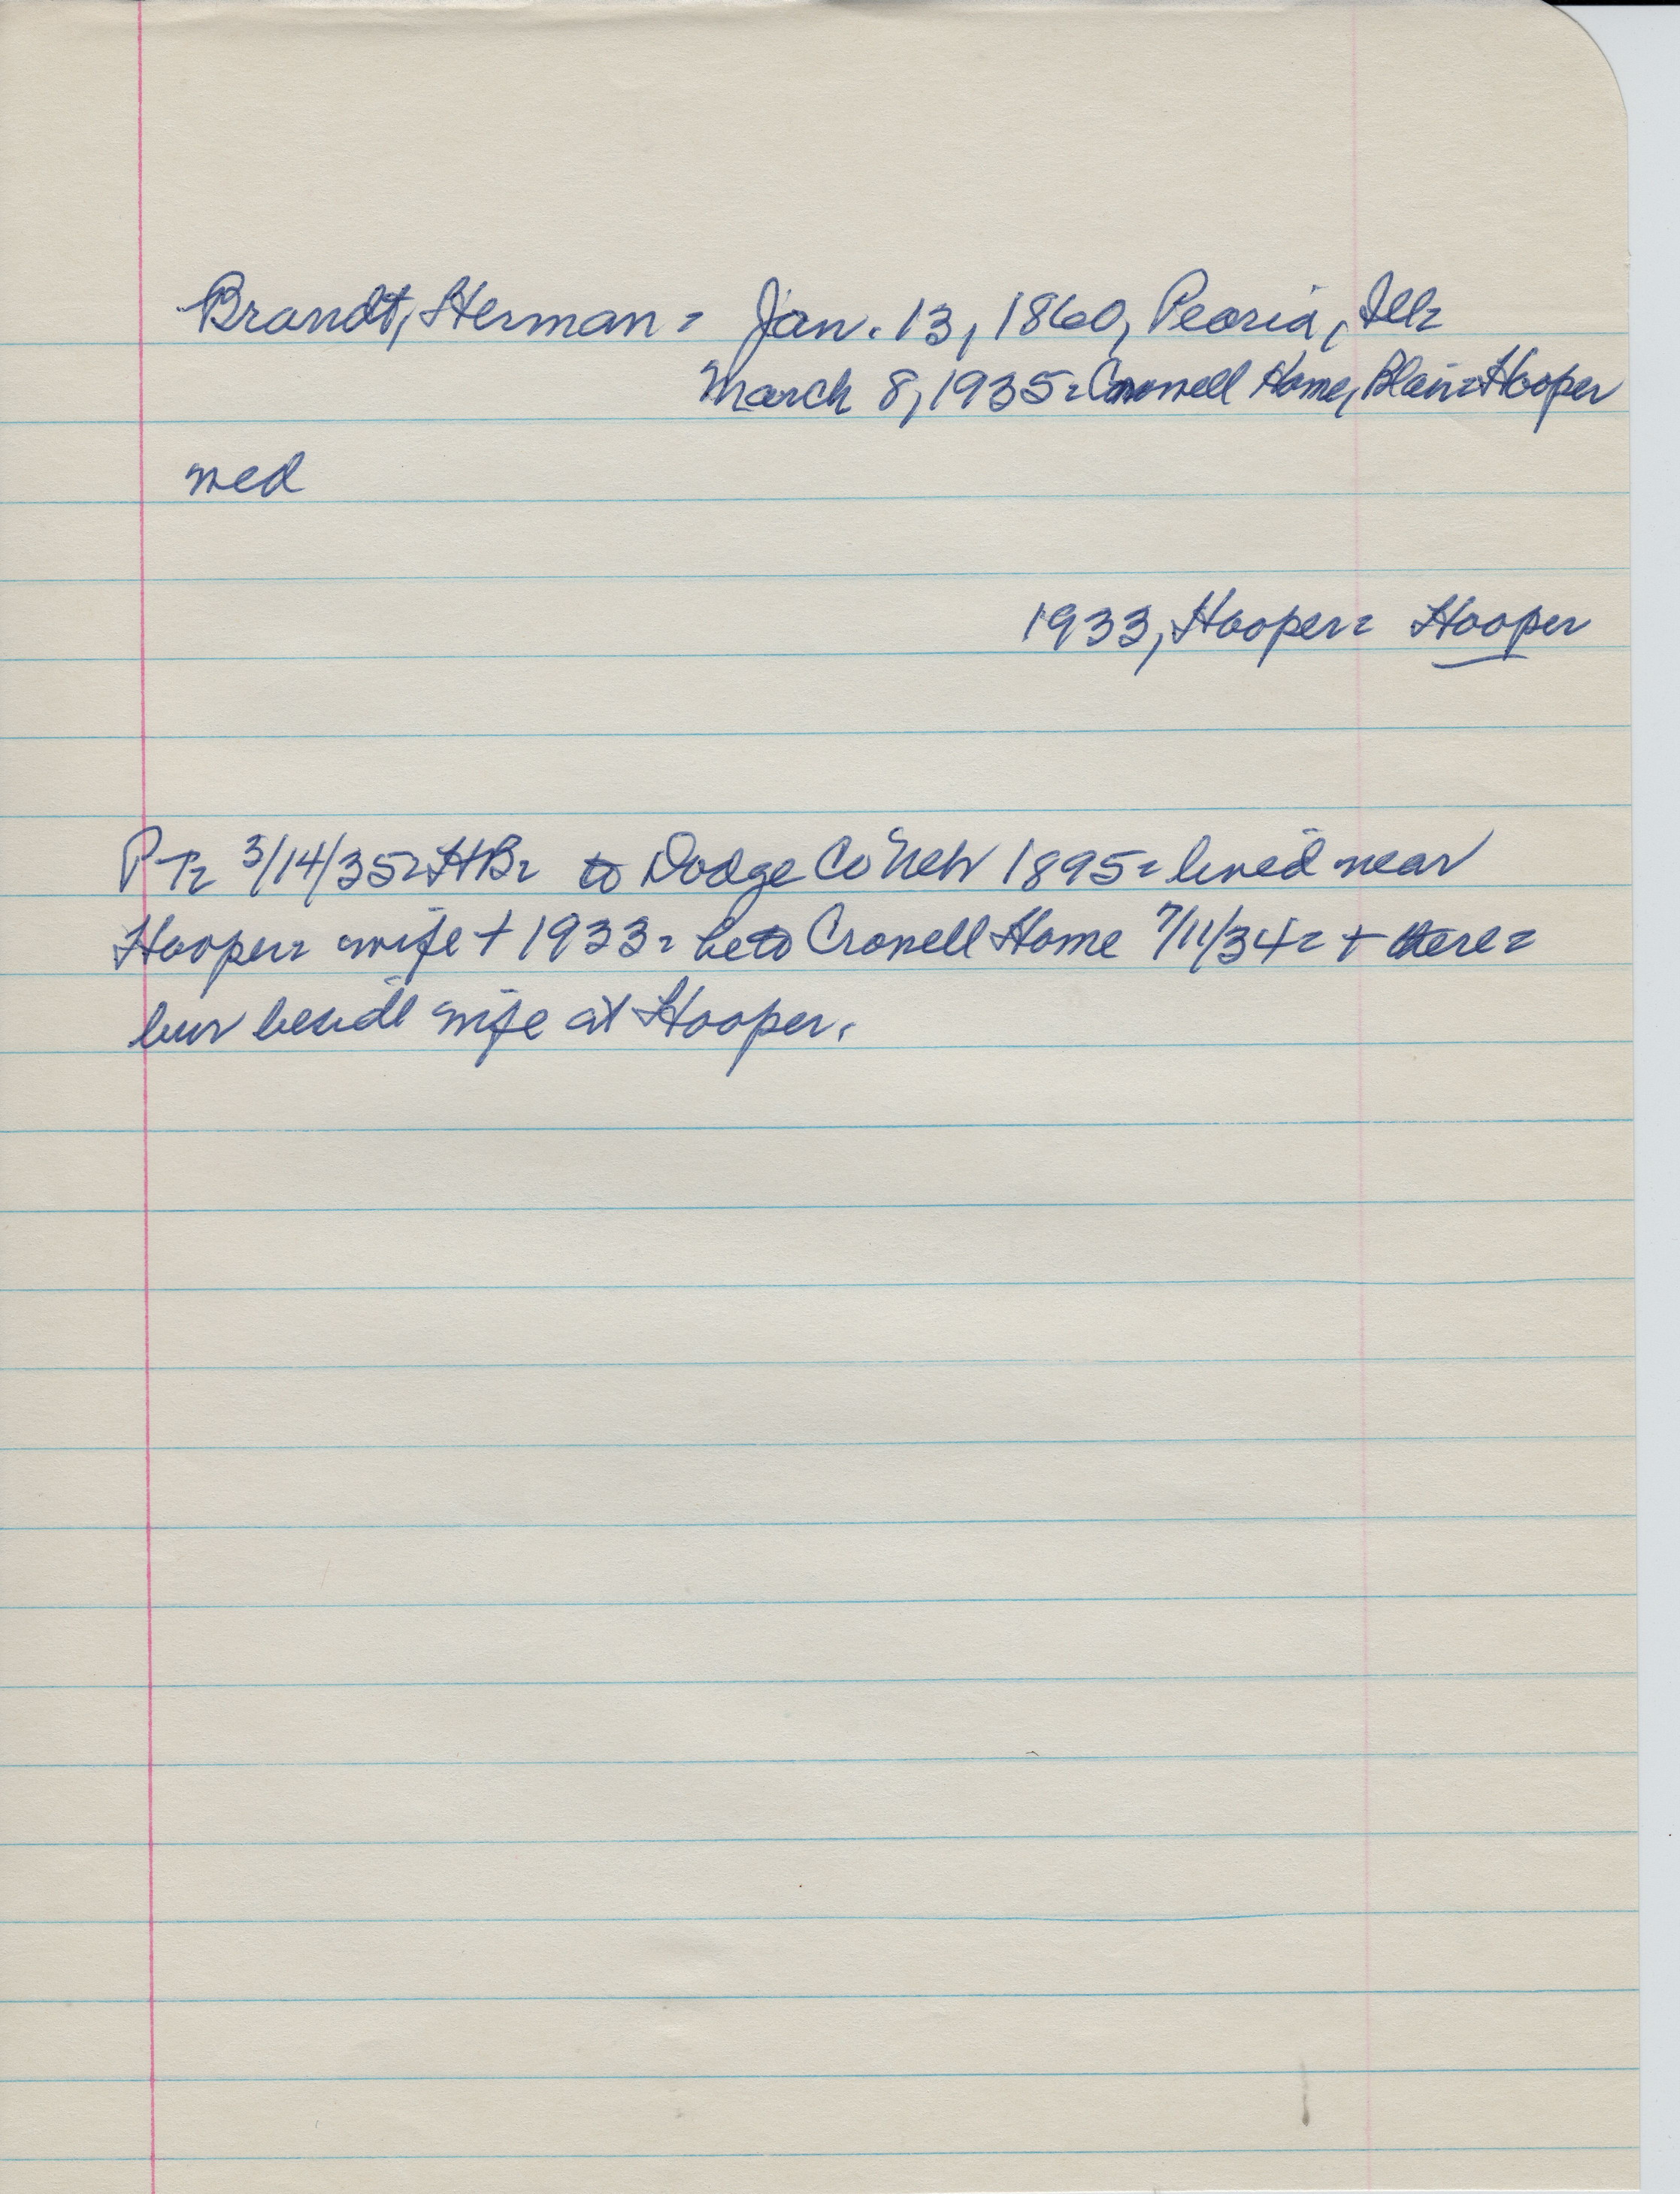 Brandt, Herman = Jan. 13, 1860, Peoria, Ill =
March 8, 1935 = Crowell Home, Blair = Hooper
wed
1933, Hooper = Hooper
PT = 3/14/35 = HB = to Dodge Co Neb 1895 = lived near
Hooper = wife + 1933 = he to Crowell Home 7/11/34 = + there =
bur beside wife at Hooper.